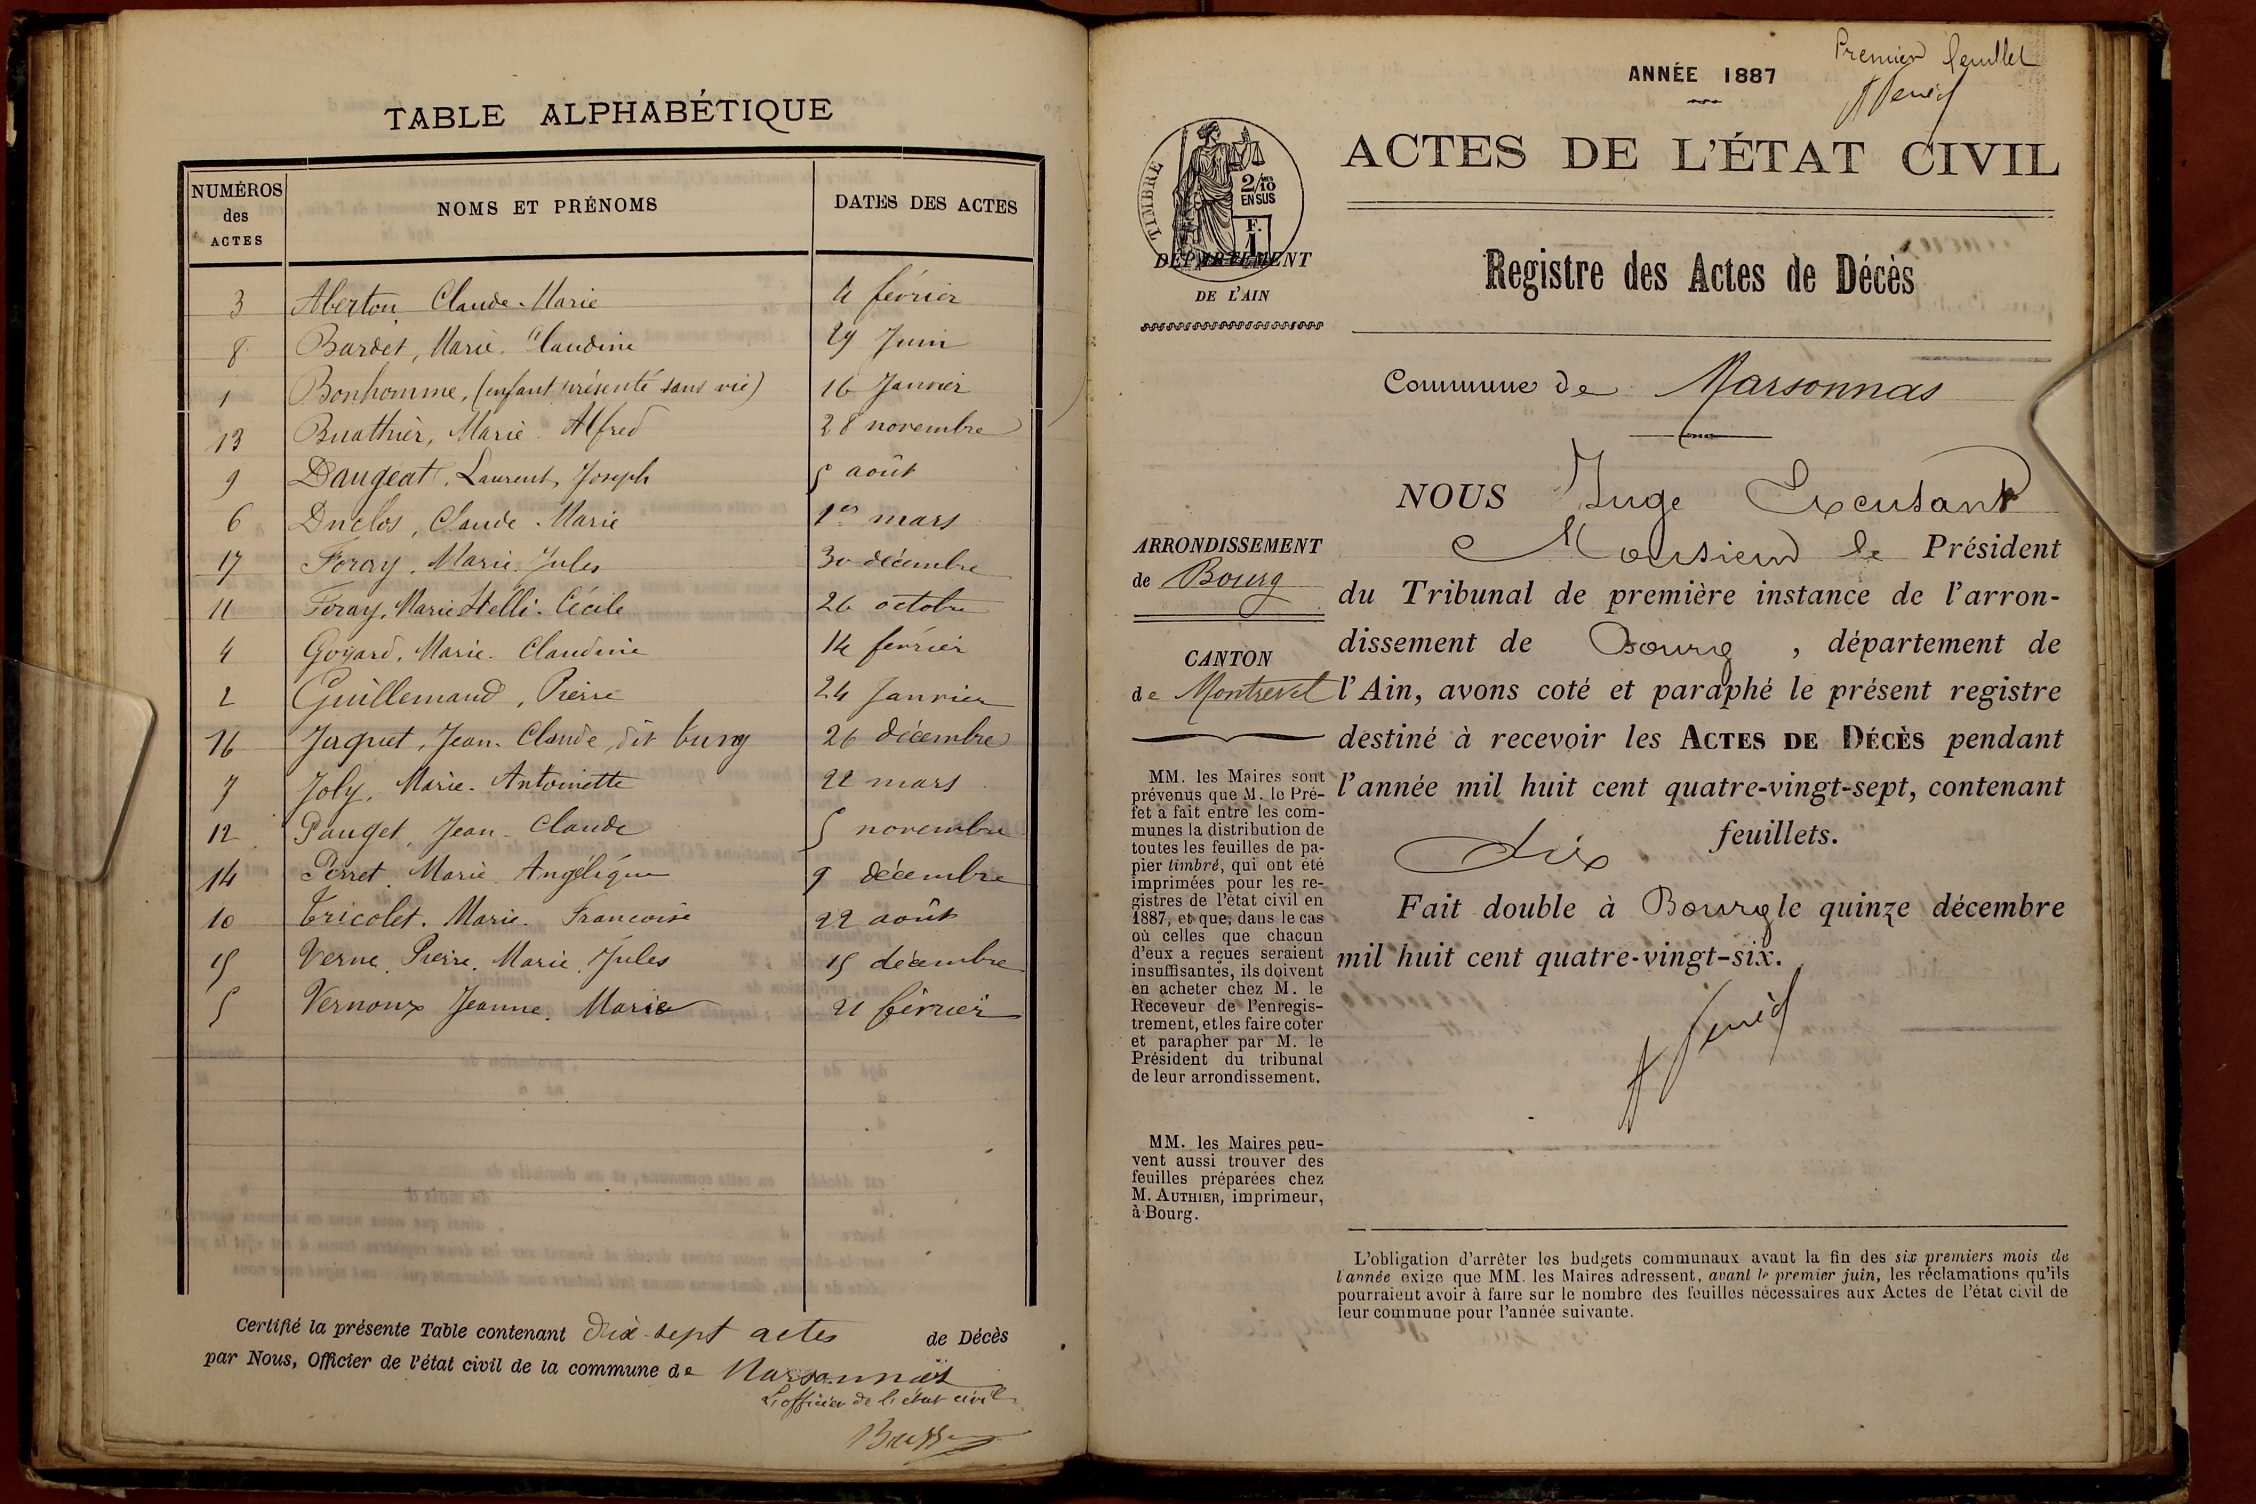 TABLE ALPHABÉTIQUE
NUMÉROS des ACTES NOMS ET PRÉNOMS DATES DES ACTES
3 Aberton Claude-Marie 4 février
8 Bardet, Marie. Claudine 29 Juin
1 Bonhomme, (enfant présenté sans vie) 16 Janvier
13 Buathier, Marie. Alfred 28 novembre
9 Daugeat, Laurent, Joseph 5 août
6 Duclos, Claude-Marie 1er mars
17 Foray, Marie Jules 30 décembre
11 Foray, Marie Cécile 26 octobre
4 Goyard, Marie. Claudine 14 février
2 Guillemaud, Pierre 24 Janvier
16 Jaquet, Jean-Claude, dit 26 décembre
7 Joly, Marie-Antoinette 22 mars
12 Pauget, Jean-Claude 5 novembre
14 Perret Marie Angélique 9 décembre
10 Tricolet. Marie. Francoise 22 août
15 Verne, Pierre, Marie, Jules 15 décembre
5 Vernoux Jeanne. Marie 21 février
Certifié la présente Table contenant dix-sept actes de Décès
par Nous, Officier de l'état civil de la commune de Marsonnas
L'officier de l'état civil
Premier feuillet
ANNÉE 1887
ACTES DE L'ÉTAT CIVIL
TIMBRE
2/10 EN SUS
F. 1
DÉPARTEMENT
DE L'AIN
Registre des Actes de Décès
Commune de Marsonnas
NOUS Juge Excusant
Monsieur le Président
du Tribunal de première instance de l'arron-
dissement de Bourg, département de
l'Ain, avons coté et paraphé le présent registre
destiné à recevoir les ACTES DE DÉCÈS pendant
l'année mil huit cent quatre-vingt-sept, contenant
dix feuillets.
Fait double à Bourg le quinze décembre
mil huit cent quatre-vingt-six.
ARRONDISSEMENT
de Bourg
CANTON
de Montrevel
MM. les Maires sont
prévenus que M. le Pré-
fet a fait entre les com-
munes la distribution de
toutes les feuilles de pa-
pier timbré, qui ont été
imprimées pour les re-
gistres de l'état civil en
1887, et que, dans le cas
où celles que chacun
d'eux a reçues seraient
insuffisantes, ils doivent
en acheter chez M. le
Receveur de l'enregis-
trement, et les faire coter
et parapher par M. le
Président du tribunal
de leur arrondissement.
MM. les Maires peu-
vent aussi trouver des
feuilles préparées chez
M. AUTHIER, imprimeur,
à Bourg.
L'obligation d'arrêter les budgets communaux avant la fin des six premiers mois de
l'année exige que MM. les Maires adressent, avant le premier juin, les réclamations qu'ils
pourraient avoir à faire sur le nombre des feuilles nécessaires aux Actes de l'état civil de
leur commune pour l'année suivante.